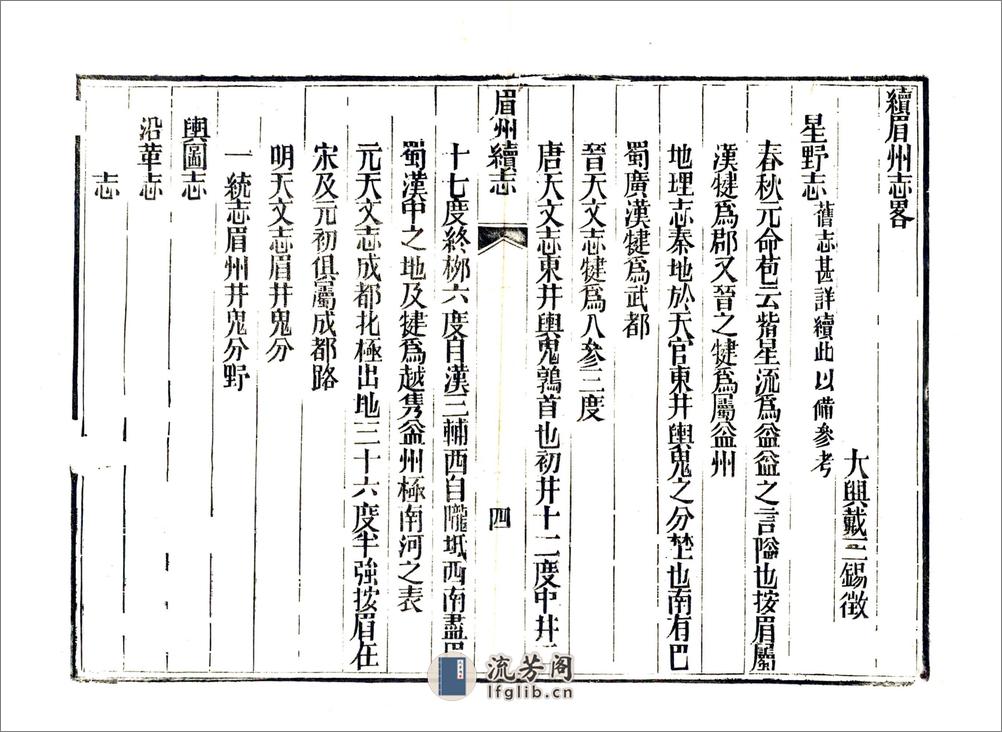 續眉州志畧
大興戴三錫徵
星野志舊志甚詳續此以備參考
春秋元命苞云觜星流爲益益之言隘也按眉屬
漢犍爲郡又晉之犍爲屬益州
地理志秦地於天官東井輿鬼之分壄也南有巴
蜀廣漢犍爲武都
晉天文志犍爲入參三度
唐天文志東井輿鬼鶉首也初井十二度中井二
眉州續志
四
十七度終栁六度自漢三輔西自隴坻西南盡巴
蜀漢中之地及犍爲越雋益州極南河之表
元天文志成都北極出地三十六度半強按眉在
宋及元初俱屬成都路
明天文志眉井鬼分
一統志眉州井鬼分野
輿圖志
沿革志
志
流芳阁
lfglib.cn